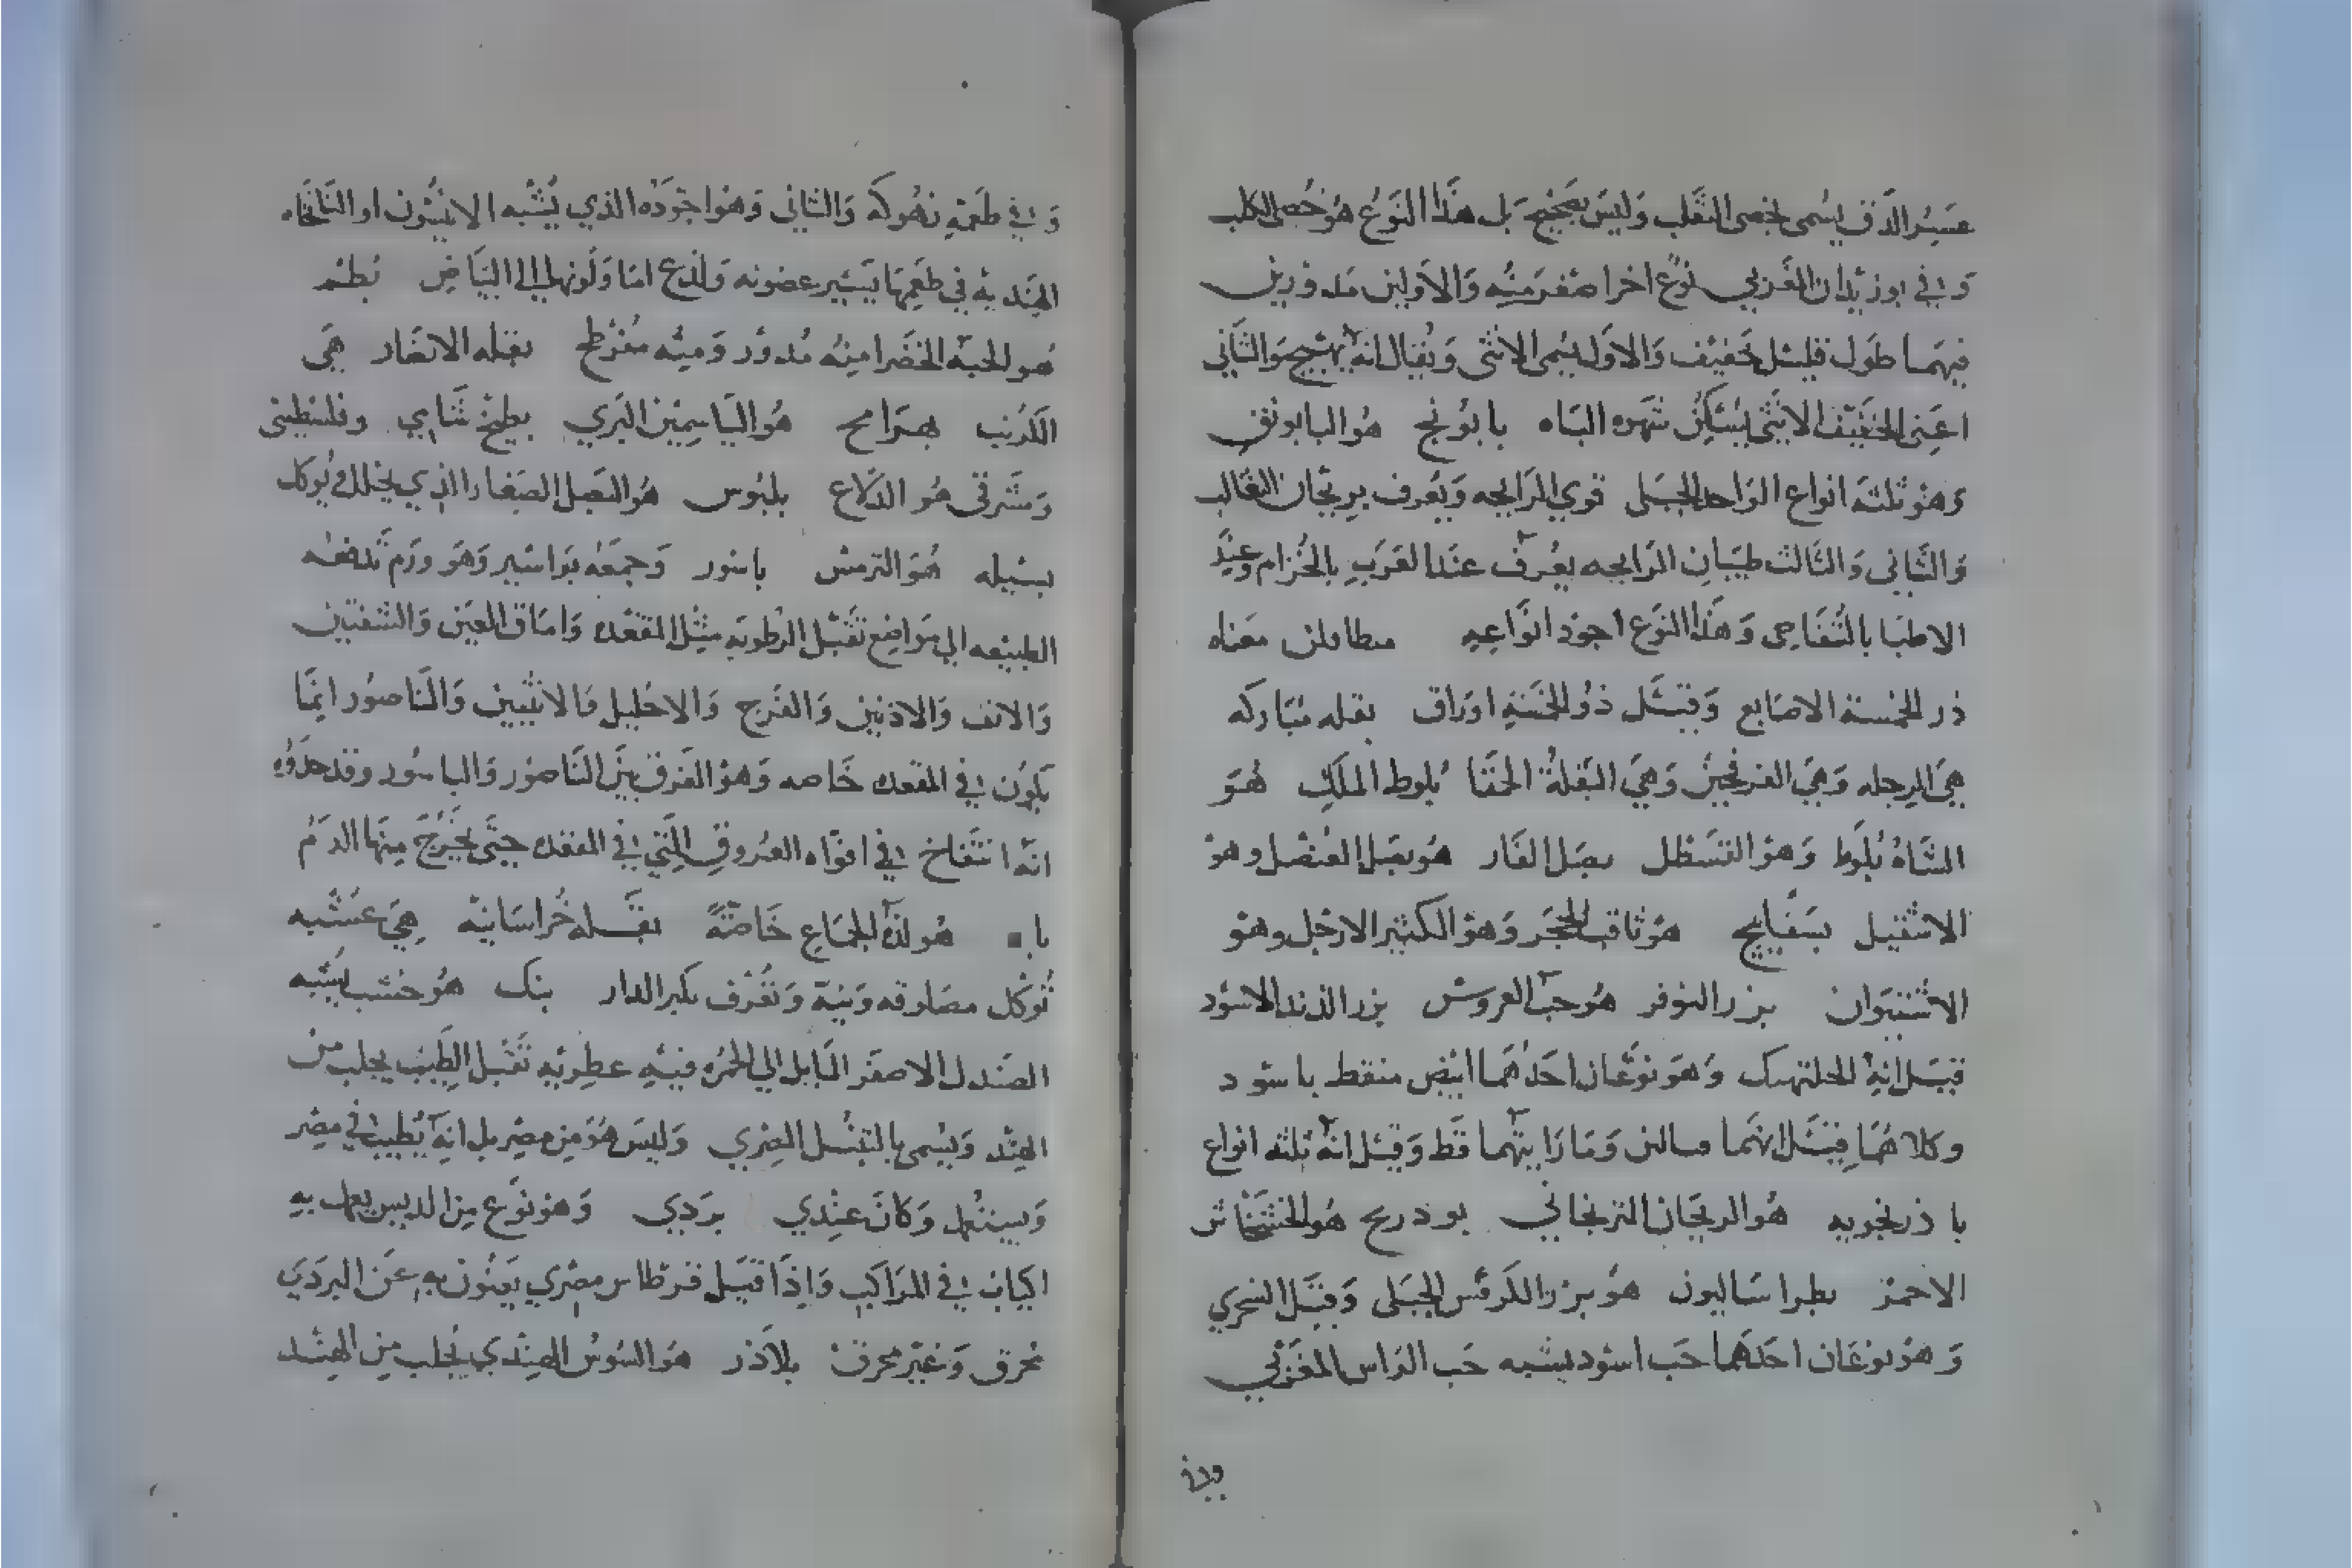 عسر الدق يسمى بخصى الثعلب وليس بصحيح بل هذا النوع هو خصى الكلب
وفي بوزيدان الغربي نوع اخر اصغر منه والاولين مدورين
فيهما طول قليل خفيف والاول يسمى الانثى ويقال انه يهيج والثاني
اعنى الخفيف الانثى يسكن شهوه الباه بابونج هو البابونق
وهو ثلثه انواع الواحد الجبلى قوي الرايحه ويعرف بريحان الثعالب
والثاني والثالث طيبان الرايحه يعرف عند العرب بالخزام وعند
الاطبا بالتفاحى وهذا النوع اجود انواعه معناه
ذو الخمسة الاصابع وقيل ذو الخمسة اوراق بقله مباركه
هي الرجله وهي الفرفجين وهي البقلة الحمقا بلوط الملك هو
الشاه بلوط وهو القسطل بصل الفار هو بصل العنصل وهو
الاشقيل بسفايج هو ثاقب الحجر وهو الكثير الارجل وهو
الاشتيوان بزر النوفر هو حب العروس بزر الدند الاسود
قيل انه وهو نوعان احدهما ابيض منقط باسود
وكلاهما قيل انهما وما رايتهما قط وقيل انه ثلثه انواع
باذرنجويه هو الريحان الترنجاني بوذريح هو الخشخاش
الاحمر بطراساليون هو بزر الكرفس الجبلى وقيل
وهو نوعان احدهما حب اسود يشبه حب الراس المغربي
وفي
وفي طعمه نهوكه والثاني وهو اجوده الذي يشبه الانيسون او النانخاه
الهنديه في طعمها يسير عضونه ولذع اما ولونها الى البياض بطم
هو الحبه الخضرا منه مدور ومنه مفرطح بقله الانصار هي
الكرنب بهرامج هو الياسمين البري بطيخ شامي وفلسطينى
ومشرقى هو الدلاع بلبوس هو البصل الصغار الذي يخلل ويوكل
بسيله هو الترمس باسور وجمعه بواسير وهو ورم تدفعه
الطبيعه الى مواضع تقبل الرطوبه مثل المقعده واماق العين والشفتين
والانف والاذنين والفرج والاحليل والانثيين والناصور انما
يكون في المقعده خاصه وهو الفرق بين الناصور والباسور وقد حدوه
انه انتفاخ في افواه العروق التي في المقعده حتى يخرج منها الدم
باه هو لذة الجماع خاصة بقله خراسانيه هي عشبه
توكل ونية وتعرف بنك هو خشب يشبه
الصندل الاصفر المايل الى الحمره فيه عطريه تقبل الطيب يجلب من
الهند ويسمى وليس هو من مصر بل انه يطيب في مصر
ويستعمل وكان عندي بردي وهو نوع من الديس يعمل به
اكياب في المراكب واذا قيل قرطاس مصري يعنون به عن البردي
محرق وغير محرق بلاذر هو السوس الهندي يجلب من الهند